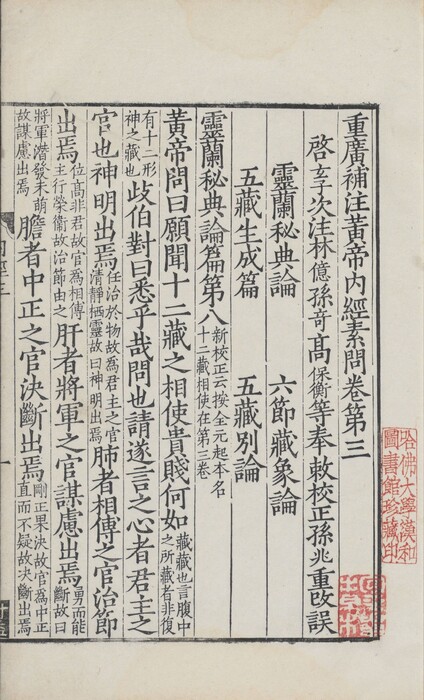 重廣補注黃帝內經素問卷第三
啓玄子次注林億孫奇高保衡等奉敕校正孫兆重改誤
靈蘭秘典論 六節藏象論
五藏生成篇 五藏別論
靈蘭秘典論篇第八新校正云按全元起本名十二藏相使在第三卷
黃帝問曰願聞十二藏之相使貴賤何如藏藏也言腹中之所藏者非復
有十二形神之藏也歧伯對曰悉乎哉問也請遂言之心者君主之
官也神明出焉任治於物故為君主之官清靜栖靈故曰神明出焉肺者相傅之官治節
出焉位高非君故官為相傅主行榮衞故治節由之肝者將軍之官謀慮出焉勇而能斷故曰
將軍潛發未萌故謀慮出焉膽者中正之官決斷出焉剛正果決故官為中正直而不疑故決斷出焉
哈佛大學漢和圖書館珍藏印